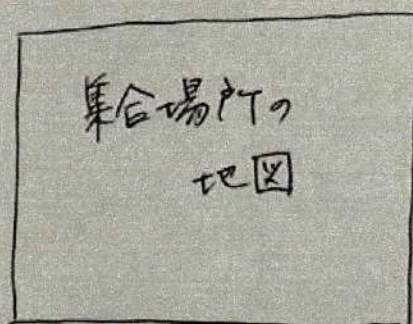 集合場所の
地図